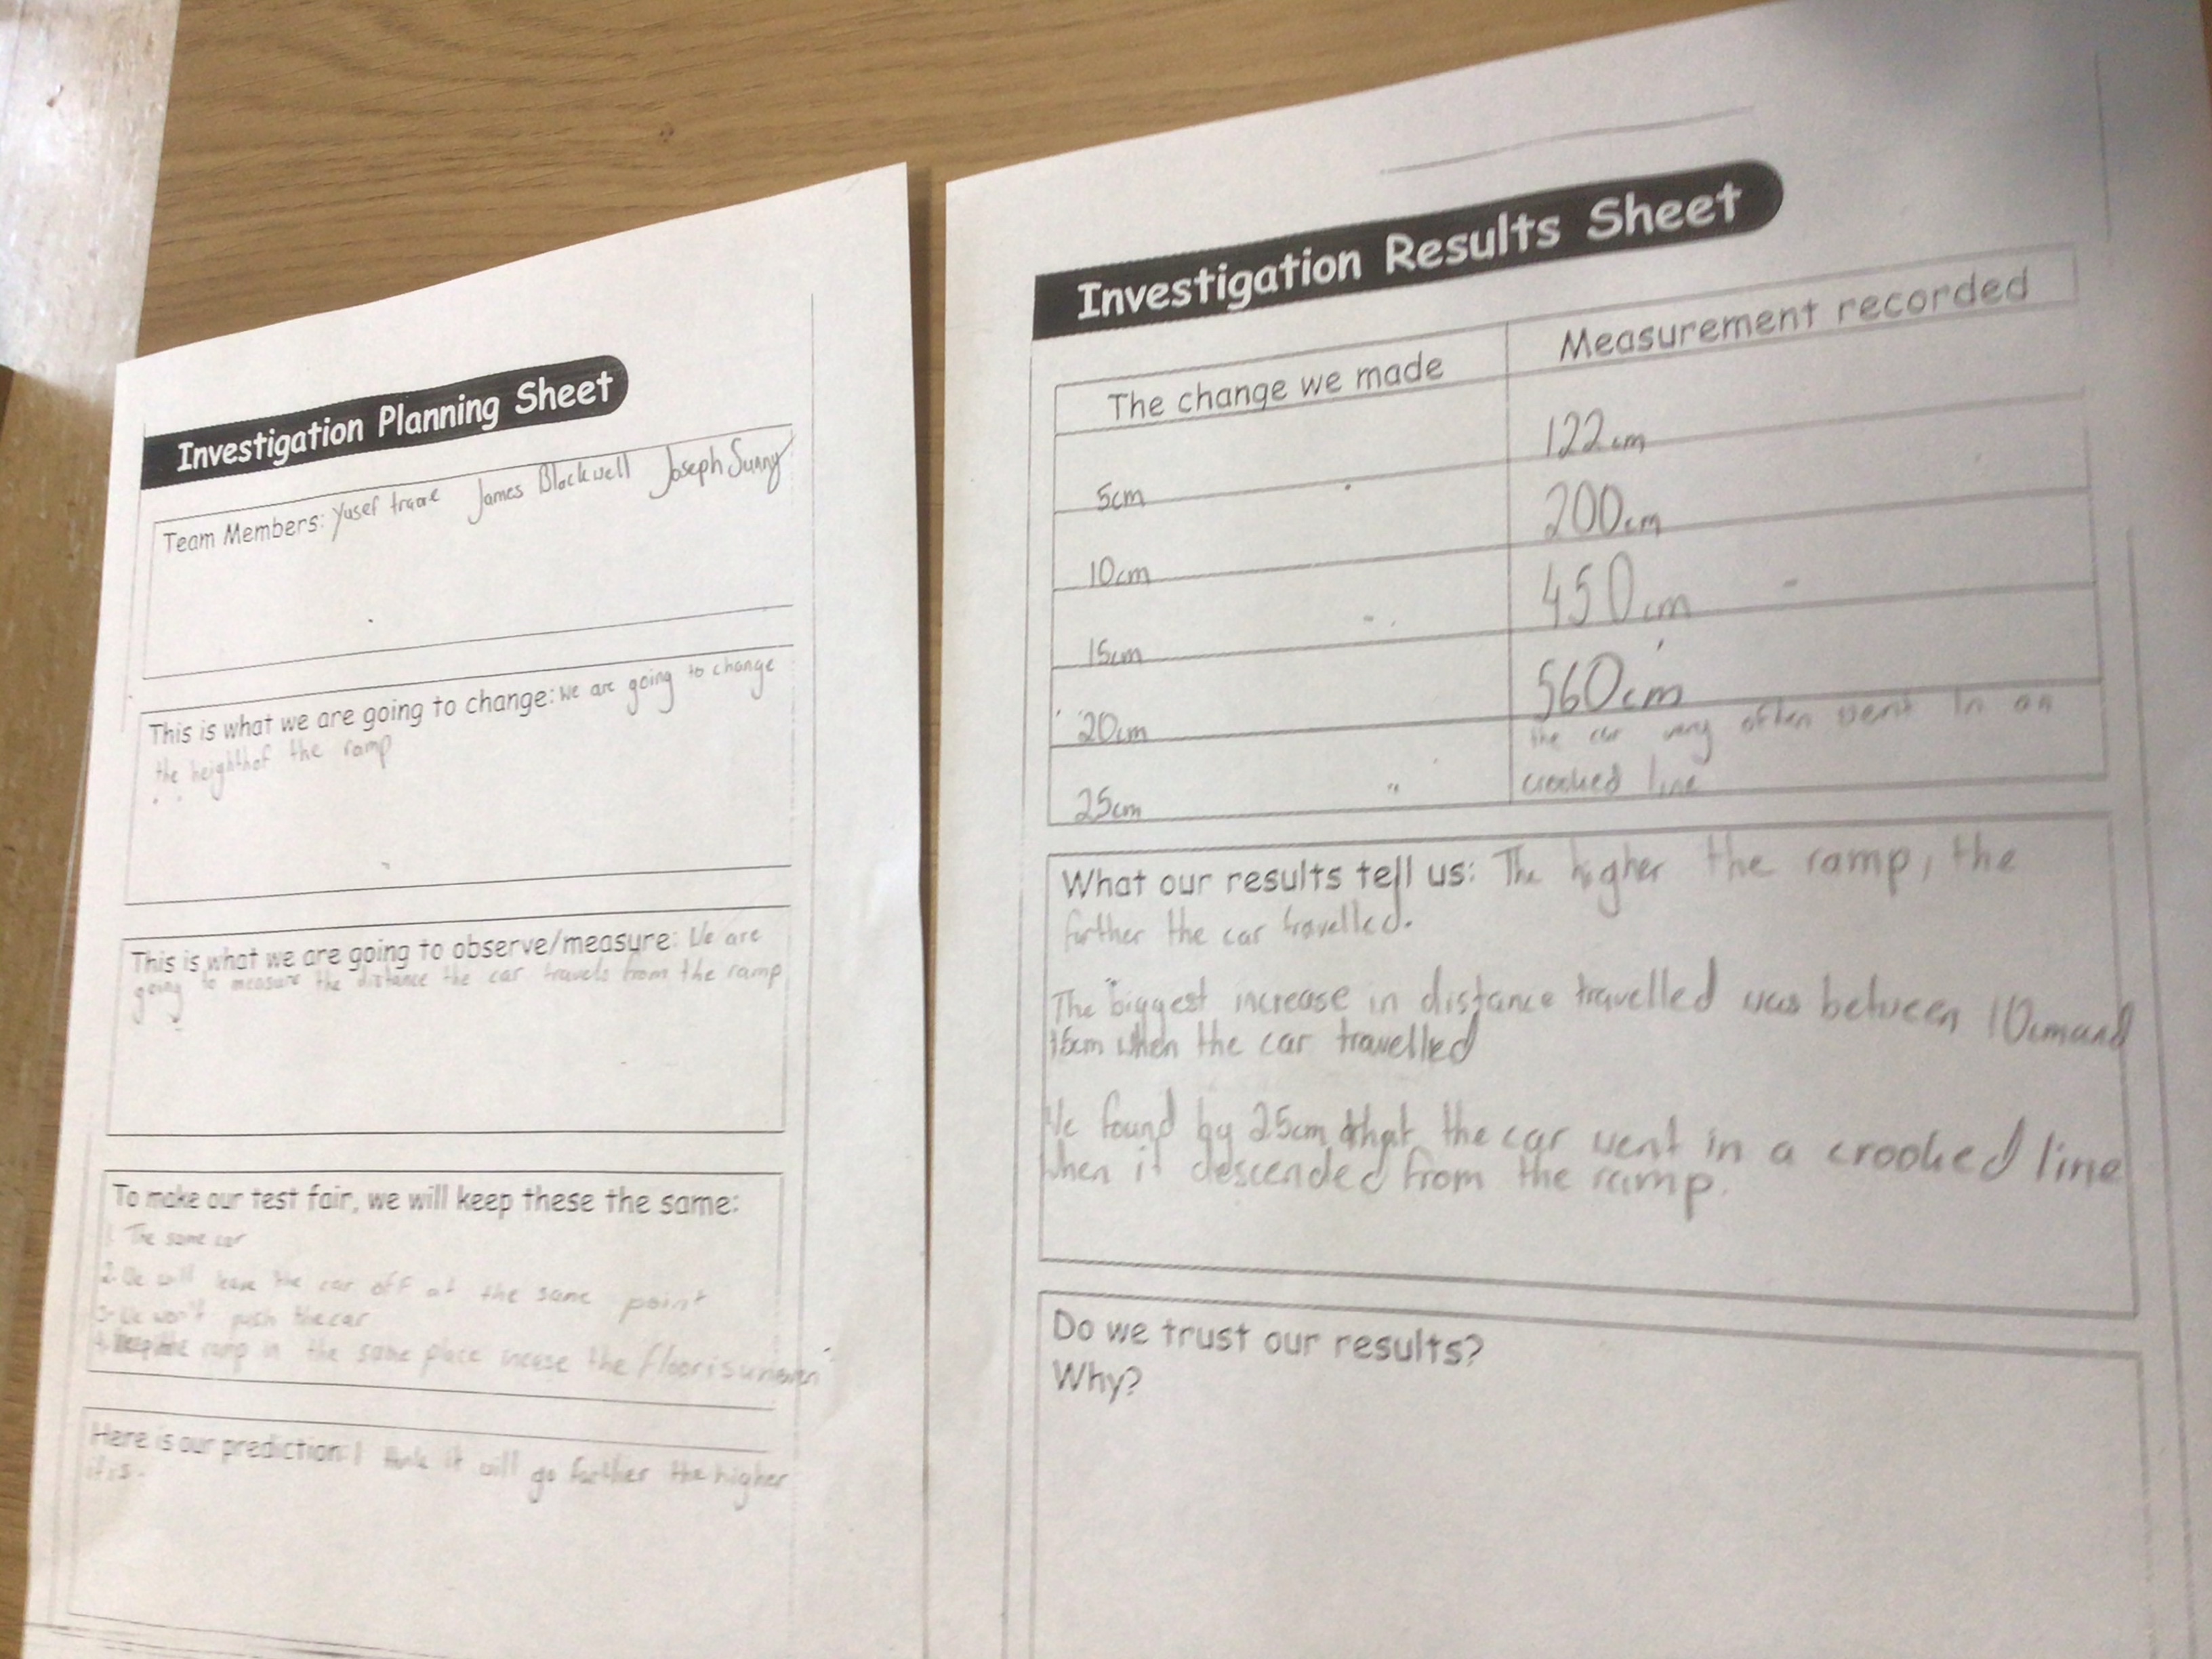 Investigation Planning Sheet
Team Members: Yusef traore James Blackwell Joseph Sunny
This is what we are going to change: we are going to change
the heightof the ramp
This is what we are going to observe/measure: We are
going to measure the distance the car travels from the ramp
To make our test fair, we will keep these the same:
1. The same car
2. We will leave the car off at the same point
3. We won't push the car
4. Keep the ramp in the same place incase the floor is uneven
Here is our prediction: I think it will go further the higher
it is.
Investigation Results Sheet
The change we made Measurement recorded
5cm 122cm
10cm 200cm
15cm 450cm
20cm 560cm
25cm the car very often went in an
crooked line
What our results tell us: The higher the ramp, the
further the car travelled.
The biggest increase in distance travelled was between 10cm and
15cm when the car travelled
We found by 25cm that the car went in a crooked line
when it descended from the ramp.
Do we trust our results?
Why?